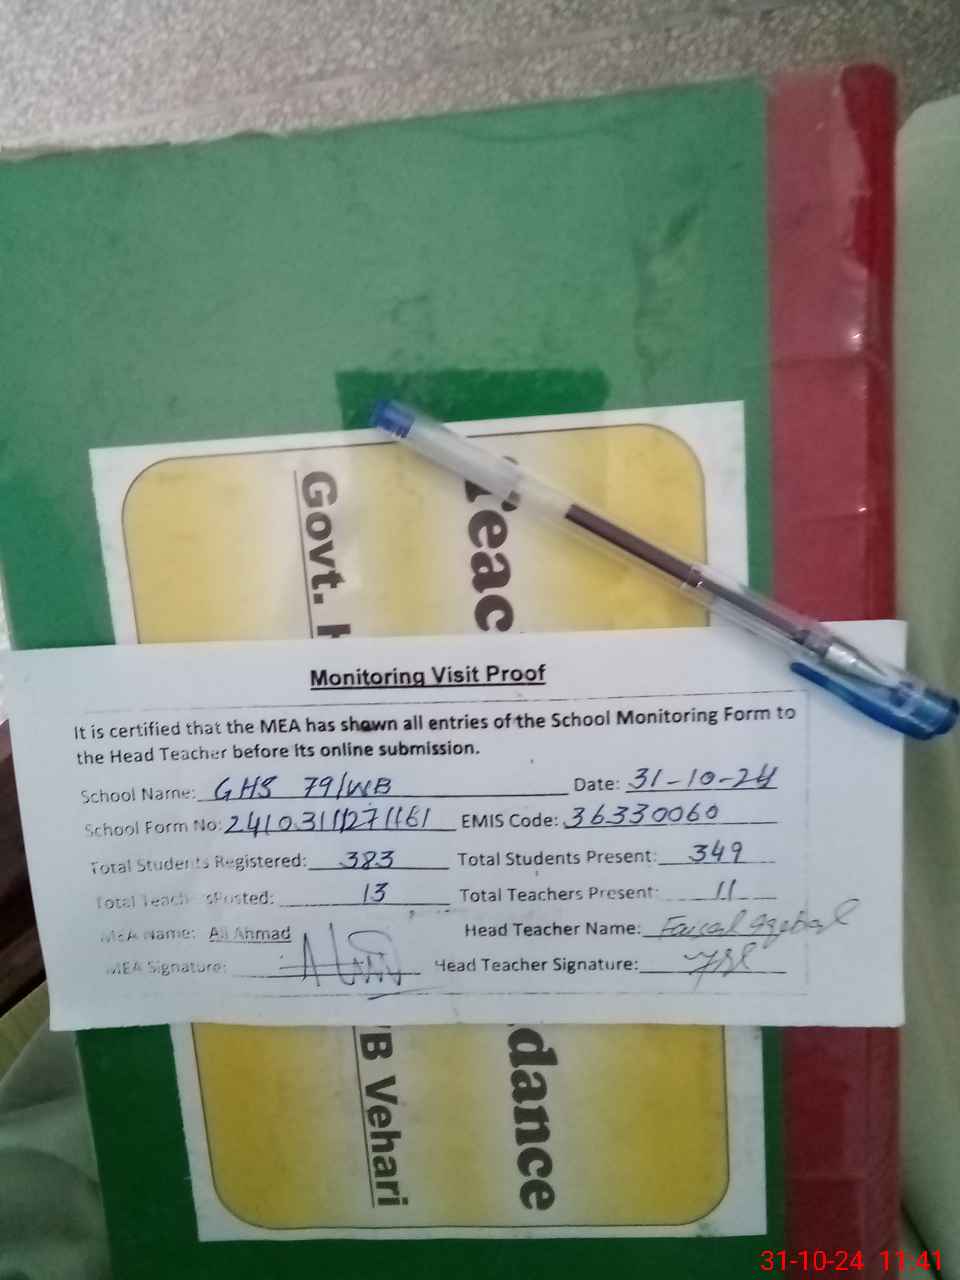 Teac
Govt. H
Monitoring Visit Proof
It is certified that the MEA has shown all entries of the School Monitoring Form to
the Head Teacher before its online submission.
School Name: GHS 79/WB Date: 31-10-24
School Form No: EMIS Code: 36330060
Total Students Registered: 383 Total Students Present: 349
Total Teachers Posted: 13 Total Teachers Present: 11
MEA Name: Ali Ahmad Head Teacher Name: Faisal
MEA Signature: Head Teacher Signature:
dance
/B Vehari
31-10-24 11:41